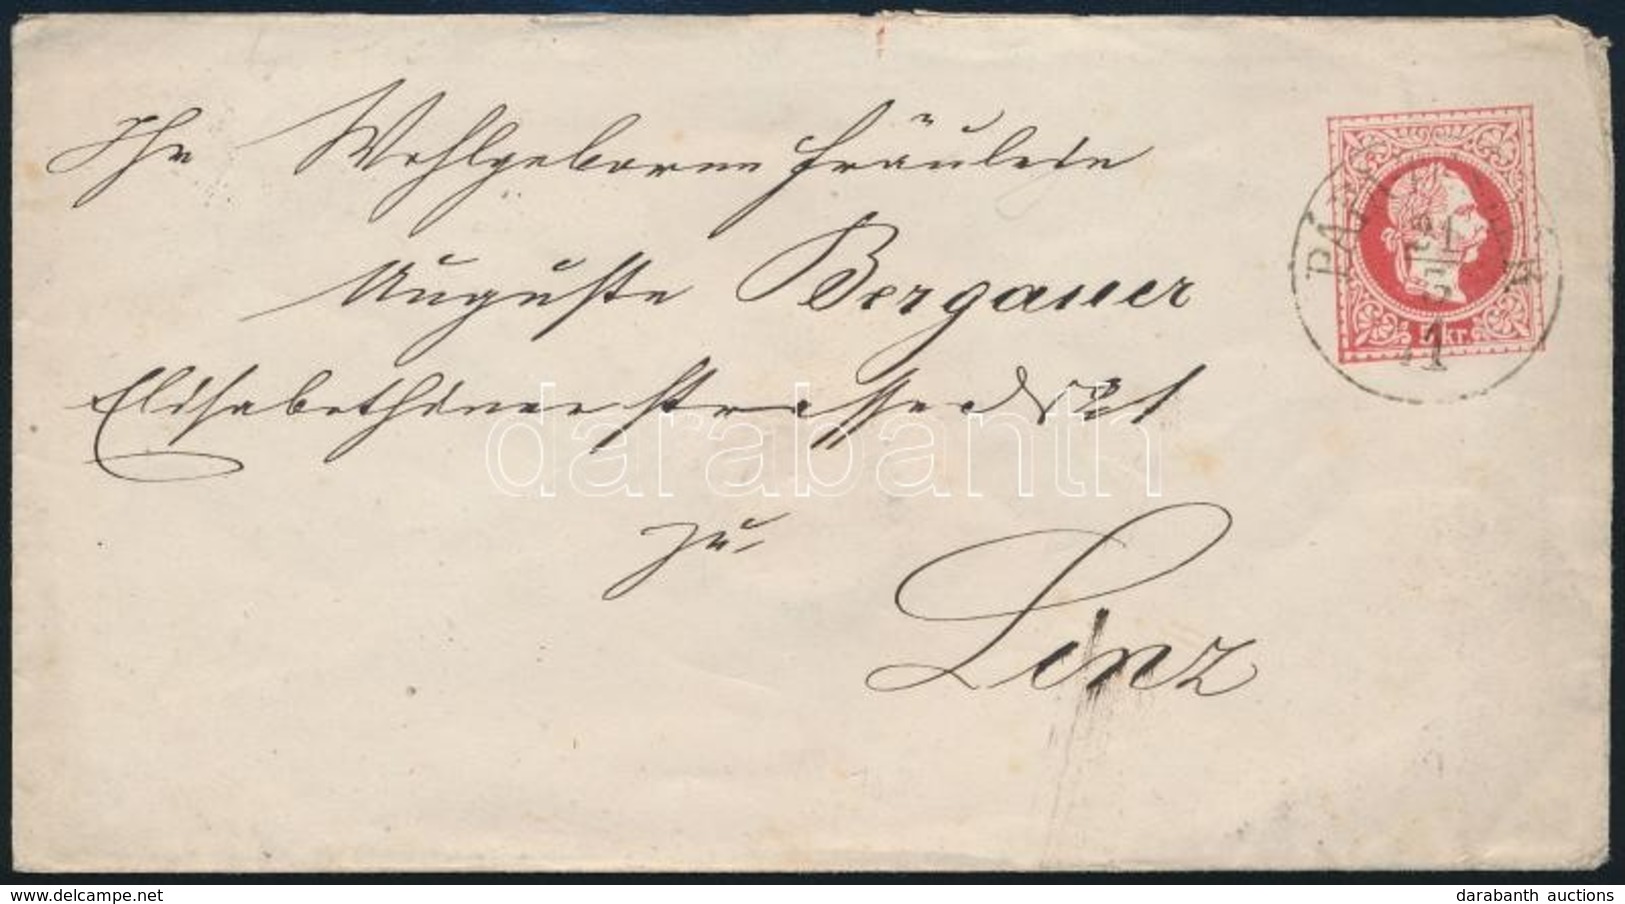 Ihr Wohlgeboren Fräulein
Auguste Bergauer
Elisabethinenstrasse
zu
Linz
71
kr.
darabanth
www.delcampe.net
darabanth auctions